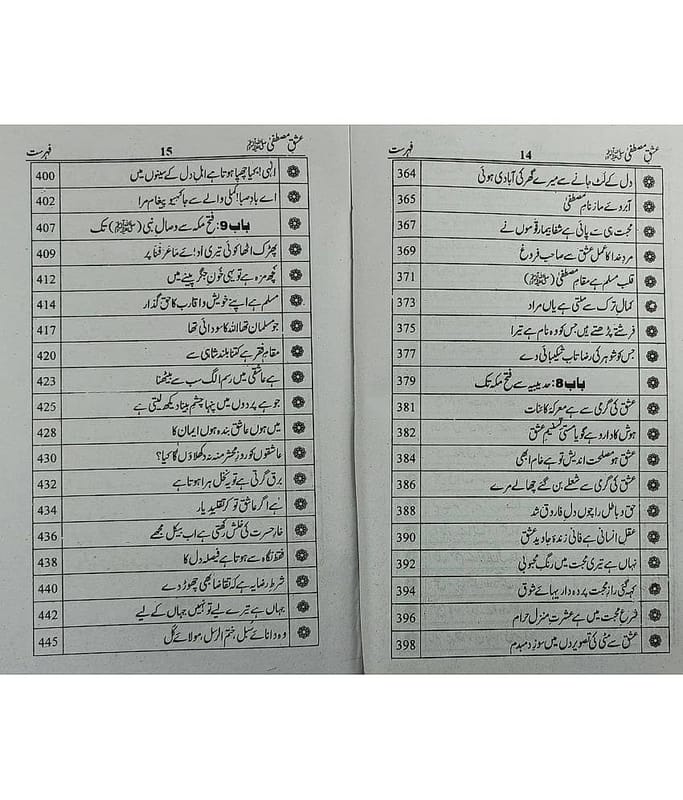 عشق مصطفیٰ ﷺ 14 فہرست
دل کے لٹ جانے سے میرے گھر کی آبادی ہوئی 364
آبروئے ما ز نام مصطفیٰ 365
محبت ہی سے پائی ہے شفا بیمار قوموں نے 367
مرد خدا کا عمل عشق سے صاحب فروغ 369
قلب مسلم ہے مقام مصطفیٰ (ﷺ) 371
کمال ترک سے ملتی ہے یاں مراد 373
فرشتے پڑھتے ہیں جس کو وہ نام ہے تیرا 375
جس کو شوہر کی رضا تاب شکیبائی دے 377
باب 8: حدیبیہ سے فتح مکہ تک 379
عشق کی گرمی سے ہے معرکہ کائنات 381
ہوش کا دارو ہے گویا مستی تسنیم عشق 382
عشق ہو مصلحت اندیش تو ہے خام ابھی 384
عشق کی گرمی سے شعلے بن گئے چھالے مرے 386
حق و باطل را چوں دل فاروق شد 388
عقل انسانی ہے فانی زندۂ جاوید عشق 390
نہاں ہے تیری محبت میں رنگ محبوبی 392
کہہ گئی راز محبت پردہ داریہائے شوق 394
شرع محبت میں ہے عشرت منزل حرام 396
عشق سے مٹی کی تصویر دل میں سوز دمبدم 398
عشق مصطفیٰ ﷺ 15 فہرست
الٰہی! کیا چھپا ہوتا ہے اہل دل کے سینوں میں 400
اے باد صبا! کملی والے سے جا کہیو پیغام مرا 402
باب 9: فتح مکہ سے وصال نبی (ﷺ) تک 407
پھڑک اٹھا کوئی تیری ادائے ما عرفنا پر 409
کچھ مزہ ہے تو یہی خون جگر پینے میں 412
مسلم ہے اپنے خویش و اقارب کا حق گذار 414
جو مسلمان تھا اللہ کا سودائی تھا 417
مقام فقر ہے کتنا بلند شاہی سے 420
ہے عاشقی میں رسم الگ سب سے بیٹھنا 423
جو ہے پردوں میں پنہا چشم بینا دیکھ لیتی ہے 425
میں ہوں عاشق بندہ ہوں ایمان کا 428
عاشقوں کو روز محشر منہ نہ دکھلاؤں گا کیا؟ 430
برق گرتی ہے تو یہ نخل ہرا ہوتا ہے 432
ہے اگر عاشق تو کر تقلید یار 434
خار حسرت کی خلش رکھتی ہے اب بیکل مجھے 436
فقط نگاہ سے ہوتا ہے فیصلہ دل کا 438
شرط رضا یہ ہے کہ تقاضا بھی چھوڑ دے 440
جہاں ہے تیرے لیے تو نہیں جہاں کے لیے 442
وہ دانائے سبل، ختم الرسل، مولائے کل 445